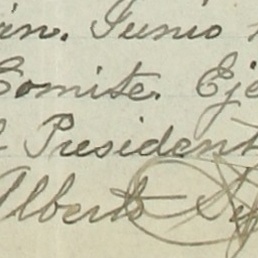 án. Junio
Comite. Eje
l President
Alberto